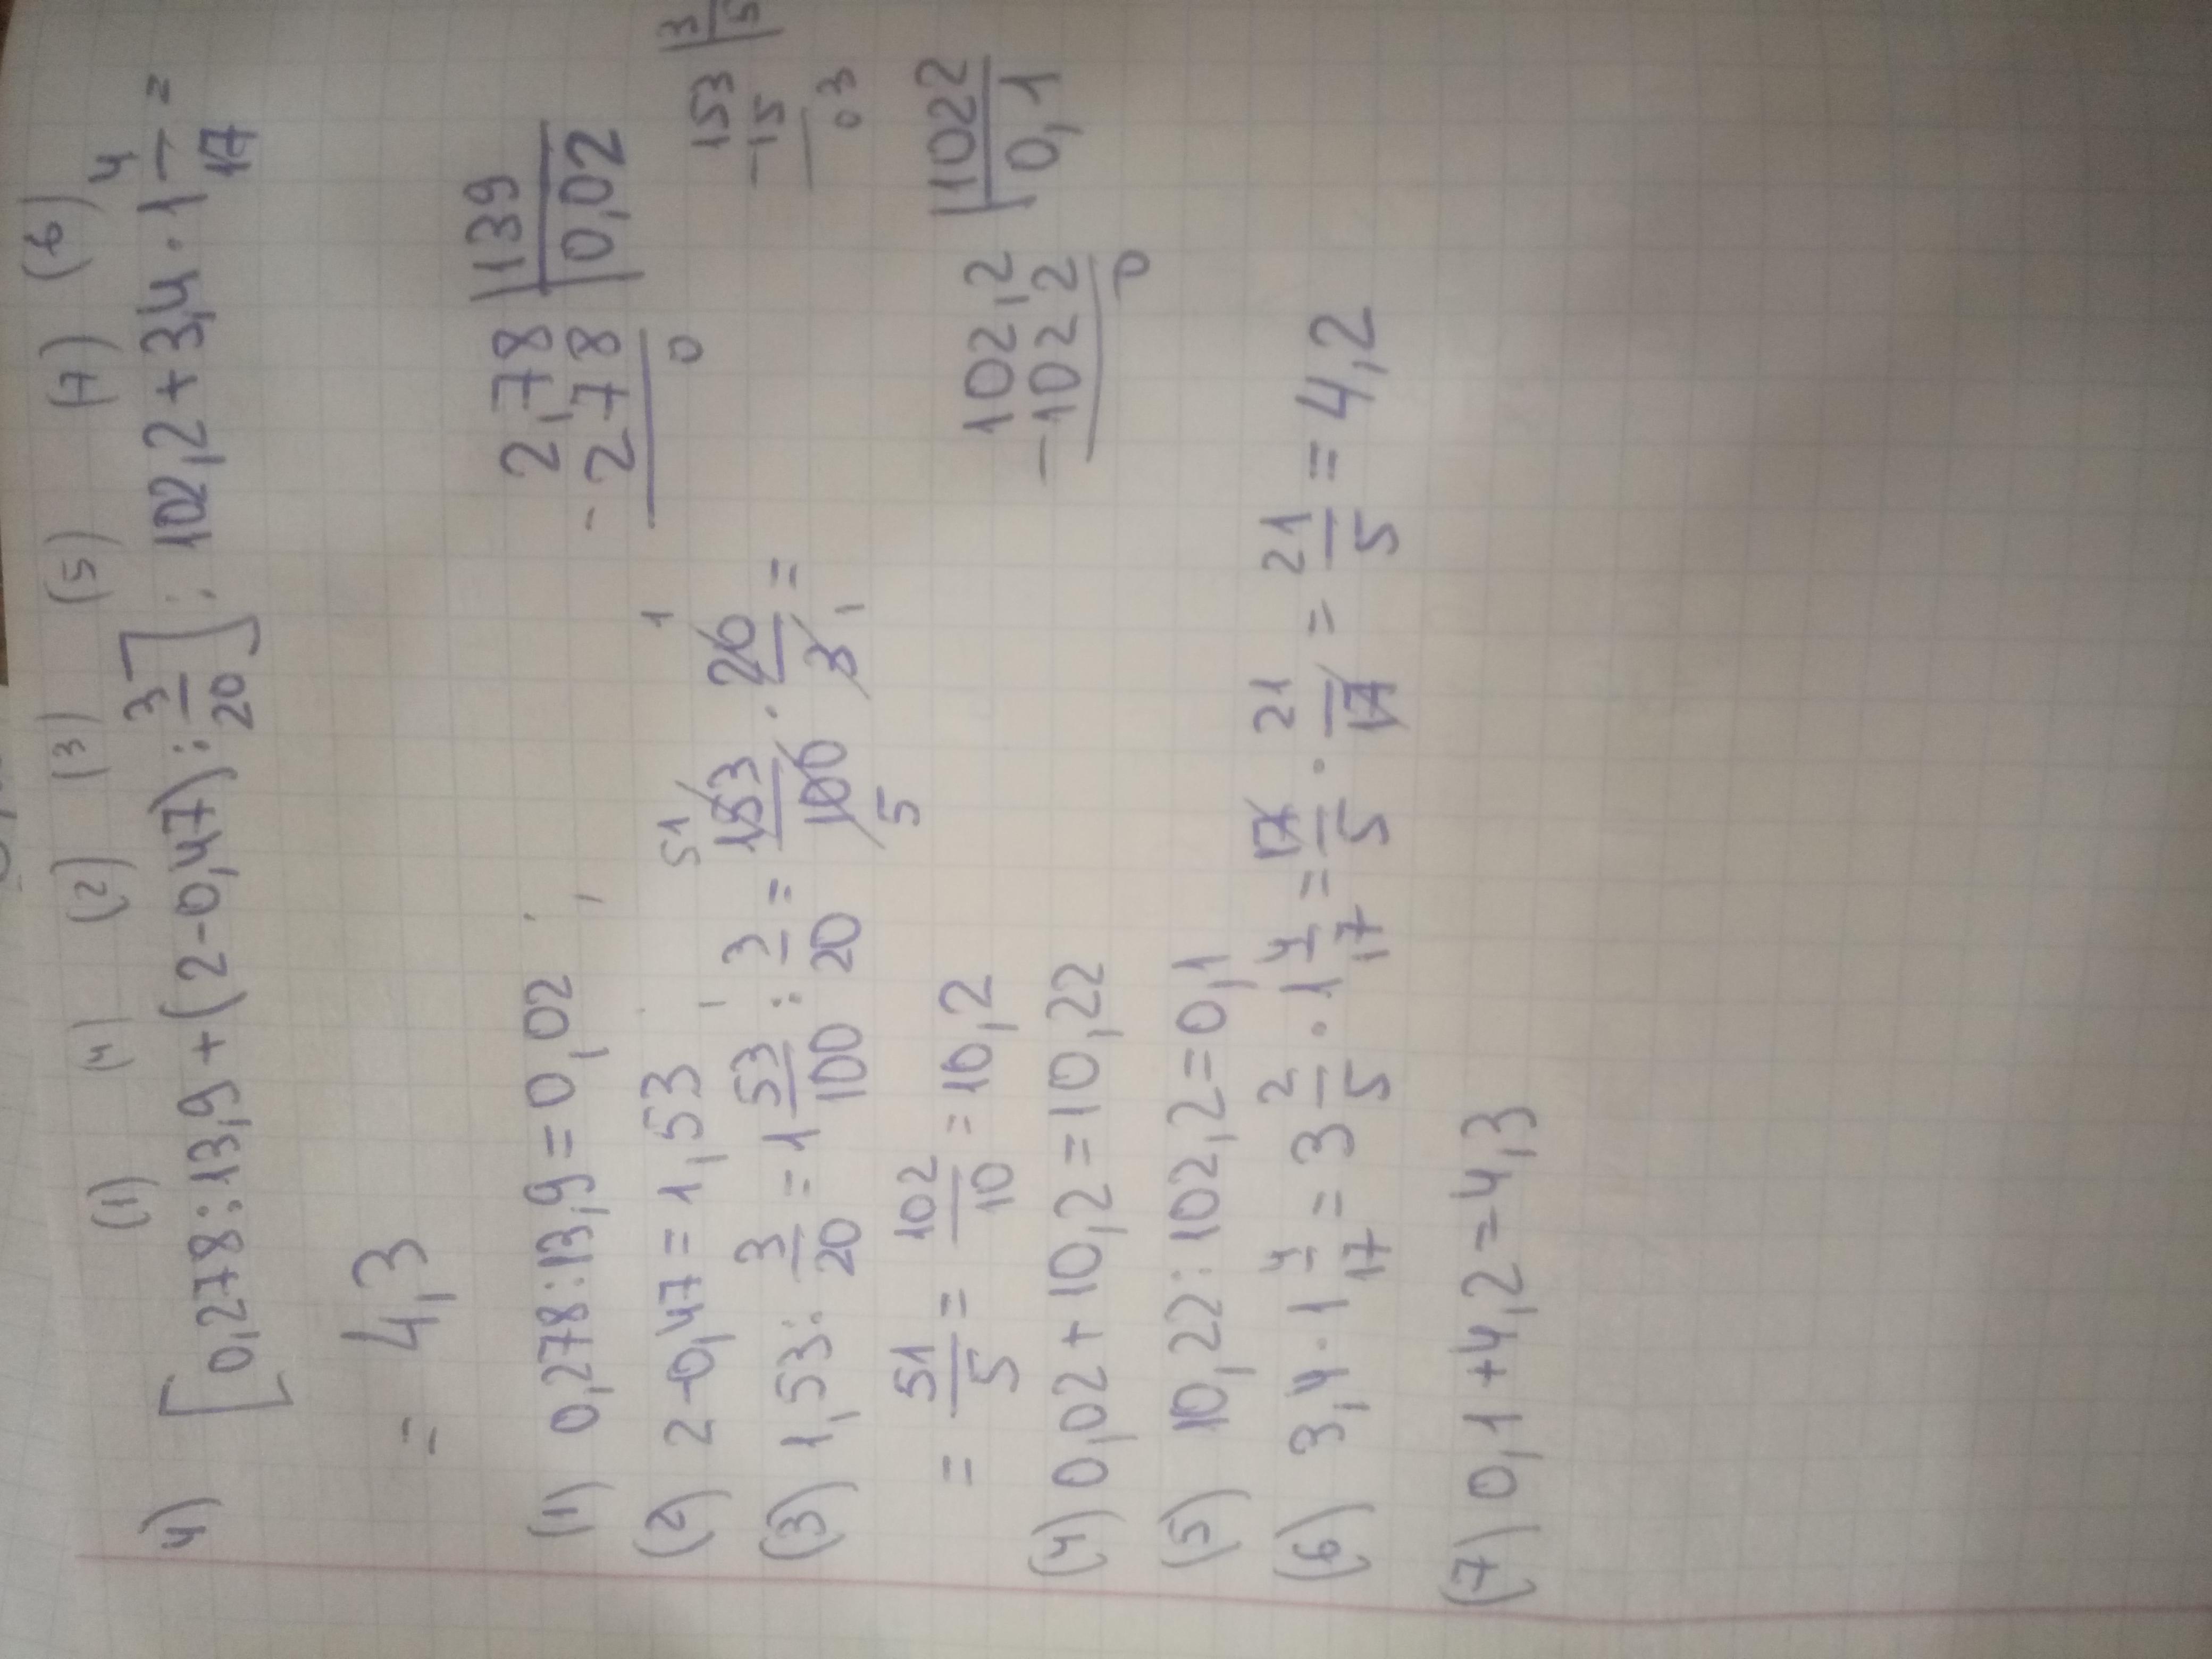 (1) (4) (2) (3) (5) (7) (6)
4) [0,278:13,9+(2-0,47):3/20]:102,2+3,4·1 4/17=
= 4,3
(1) 0,278:13,9=0,02
2,78 |139
-278 |0,02
0
(2) 2-0,47=1,53
(3) 1,53:3/20=1 53/100:3/20=153/100·20/3=
51 1
5 1
153 |3
-15 |5
03
=51/5=102/10=10,2
(4) 0,02+10,2=10,22
102,2 |1022
-1022 |0,1
0
(5) 10,22:102,2=0,1
(6) 3,4·1 4/17=3 2/5·1 4/17=17/5·21/17=21/5=4,2
(7) 0,1+4,2=4,3